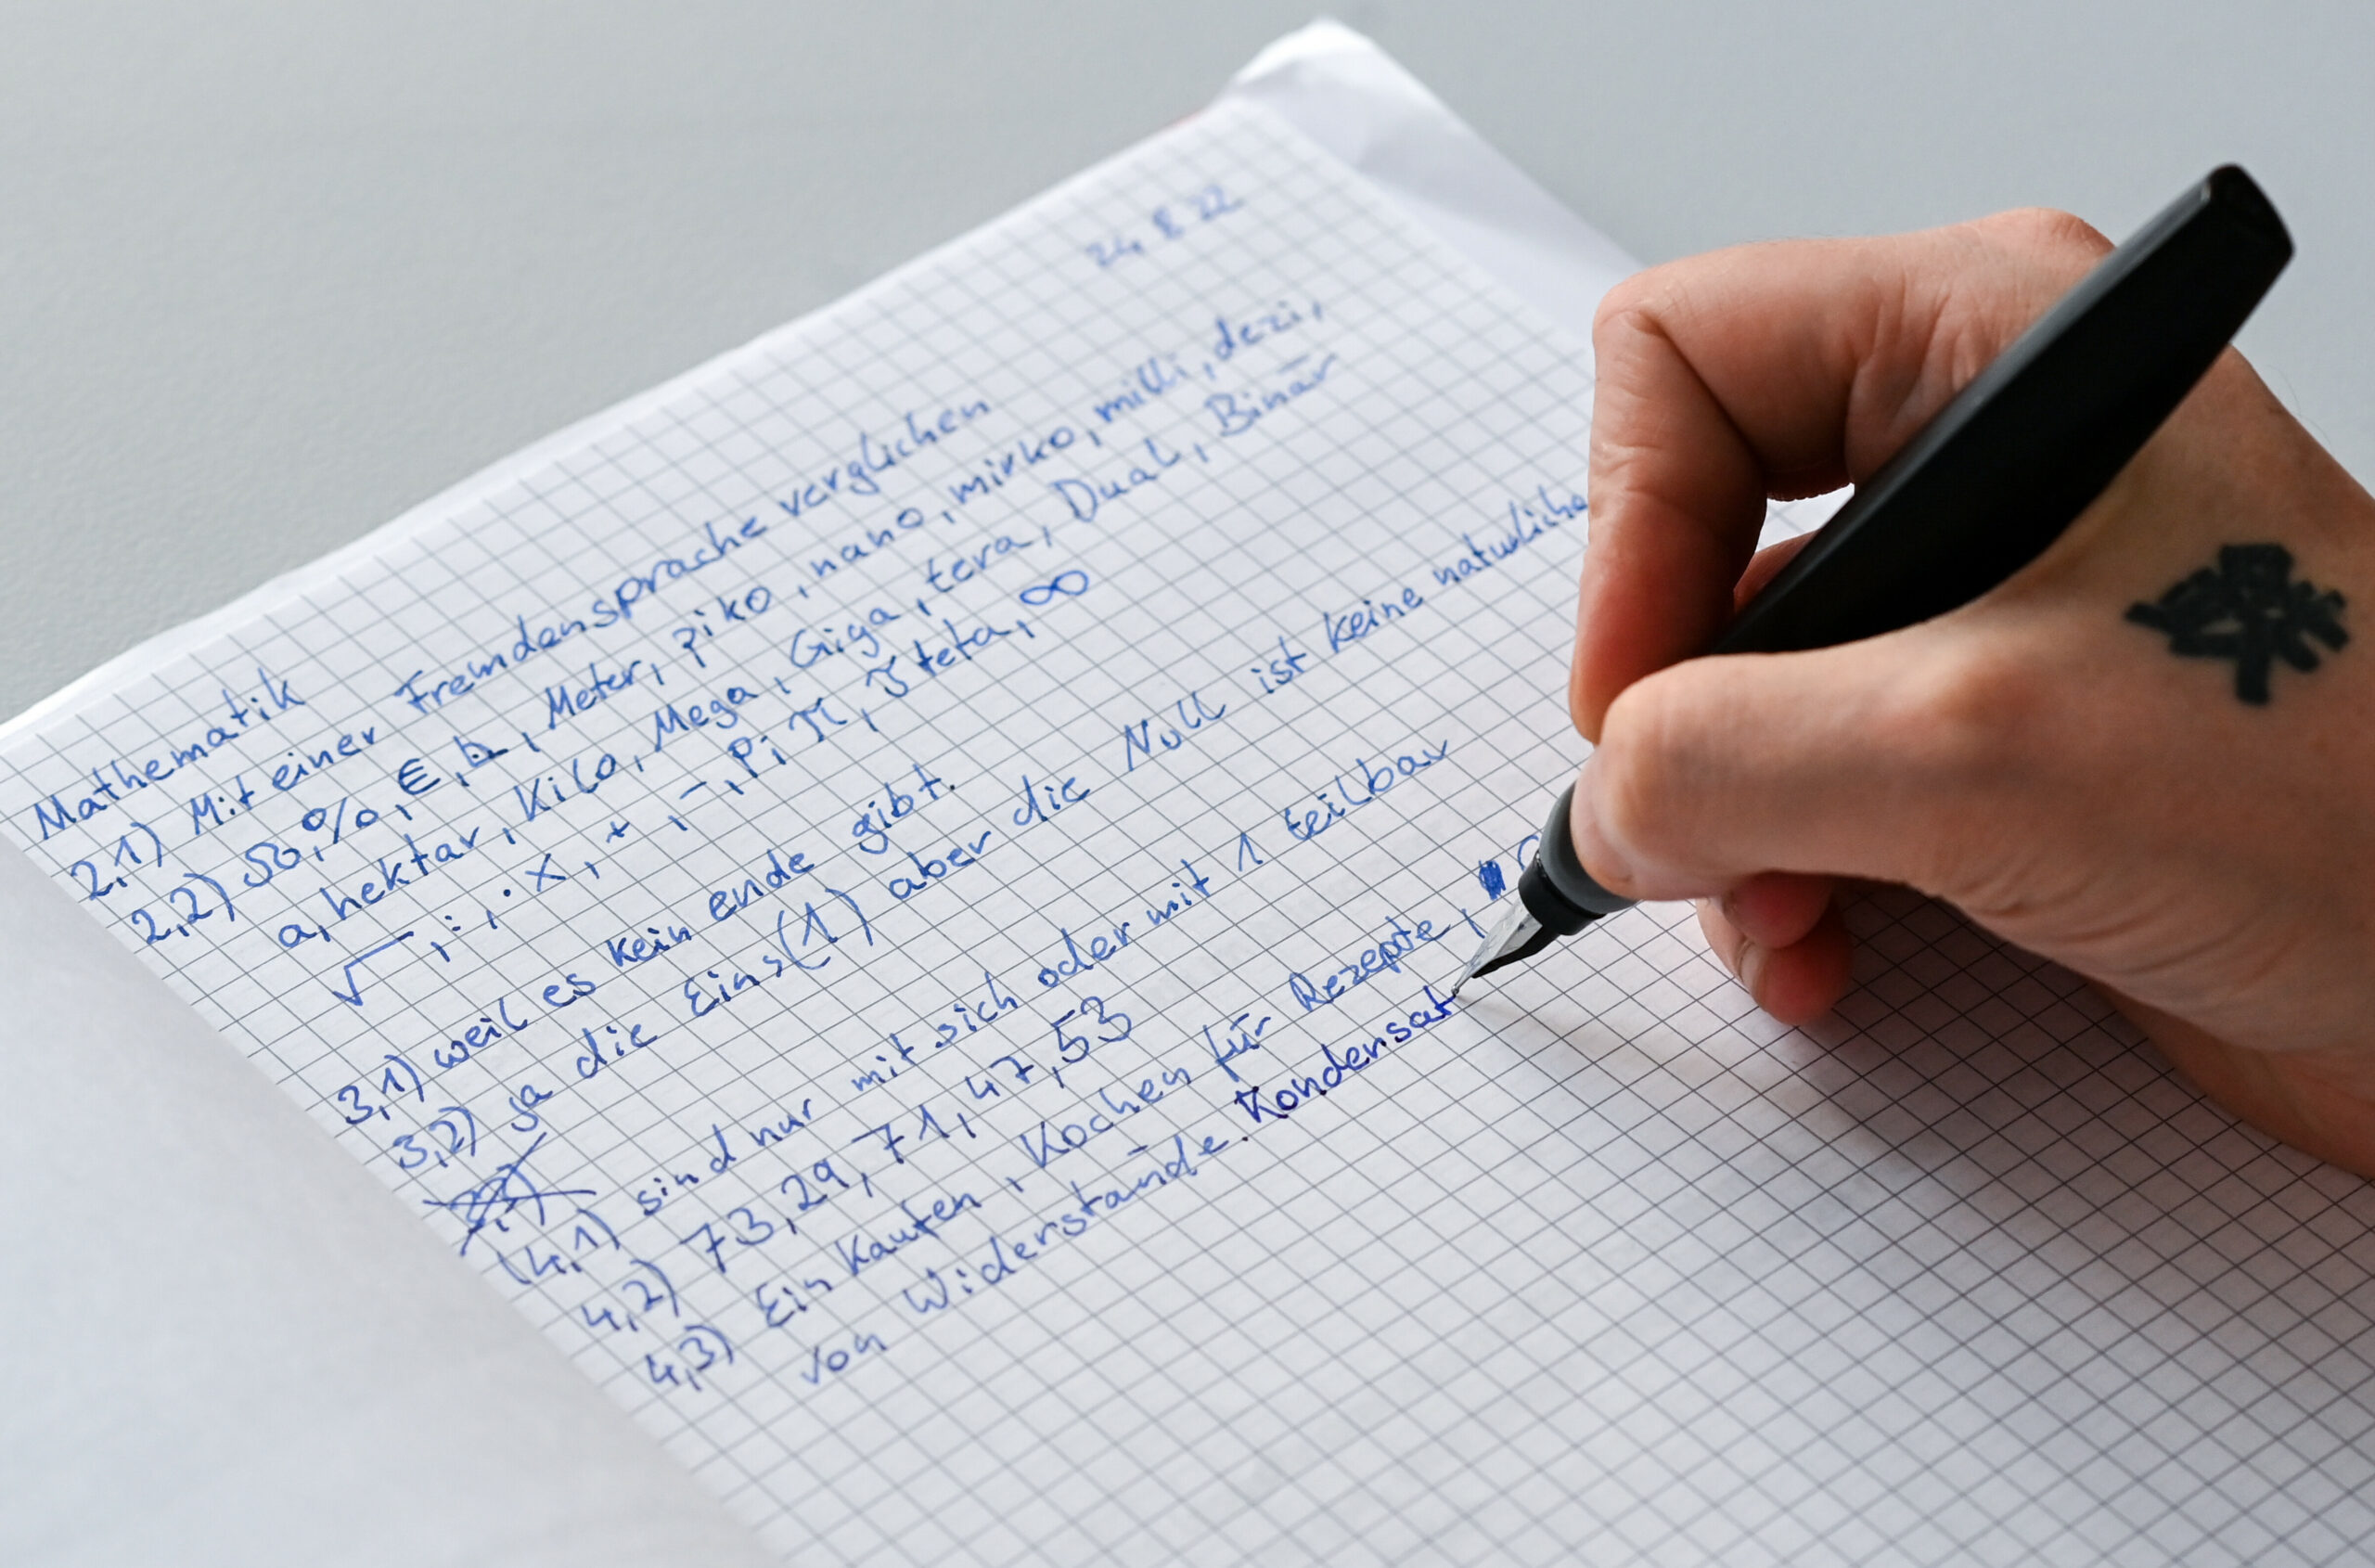 24 8 22
Mathematik
2,1) Mit einer Fremdensprache verglichen
2,2) 50,%,€, , Meter, piko, nano, mirko, milli, dezi,
a, hektar, Kilo, Mega, Giga, tera, Dual, Binär
√, :, ·, x, +, -, Pi π, teta, ∞
3,1) weil es kein ende gibt.
3,2) ja die Eins(1) aber die Null ist keine naturliche
4,1) sind nur mit sich oder mit 1 teilbar
4,2) 73,29,71,47,53
4,3) Ein Kaufen, Kochen für Rezepte,
von Widerstände. Kondensat